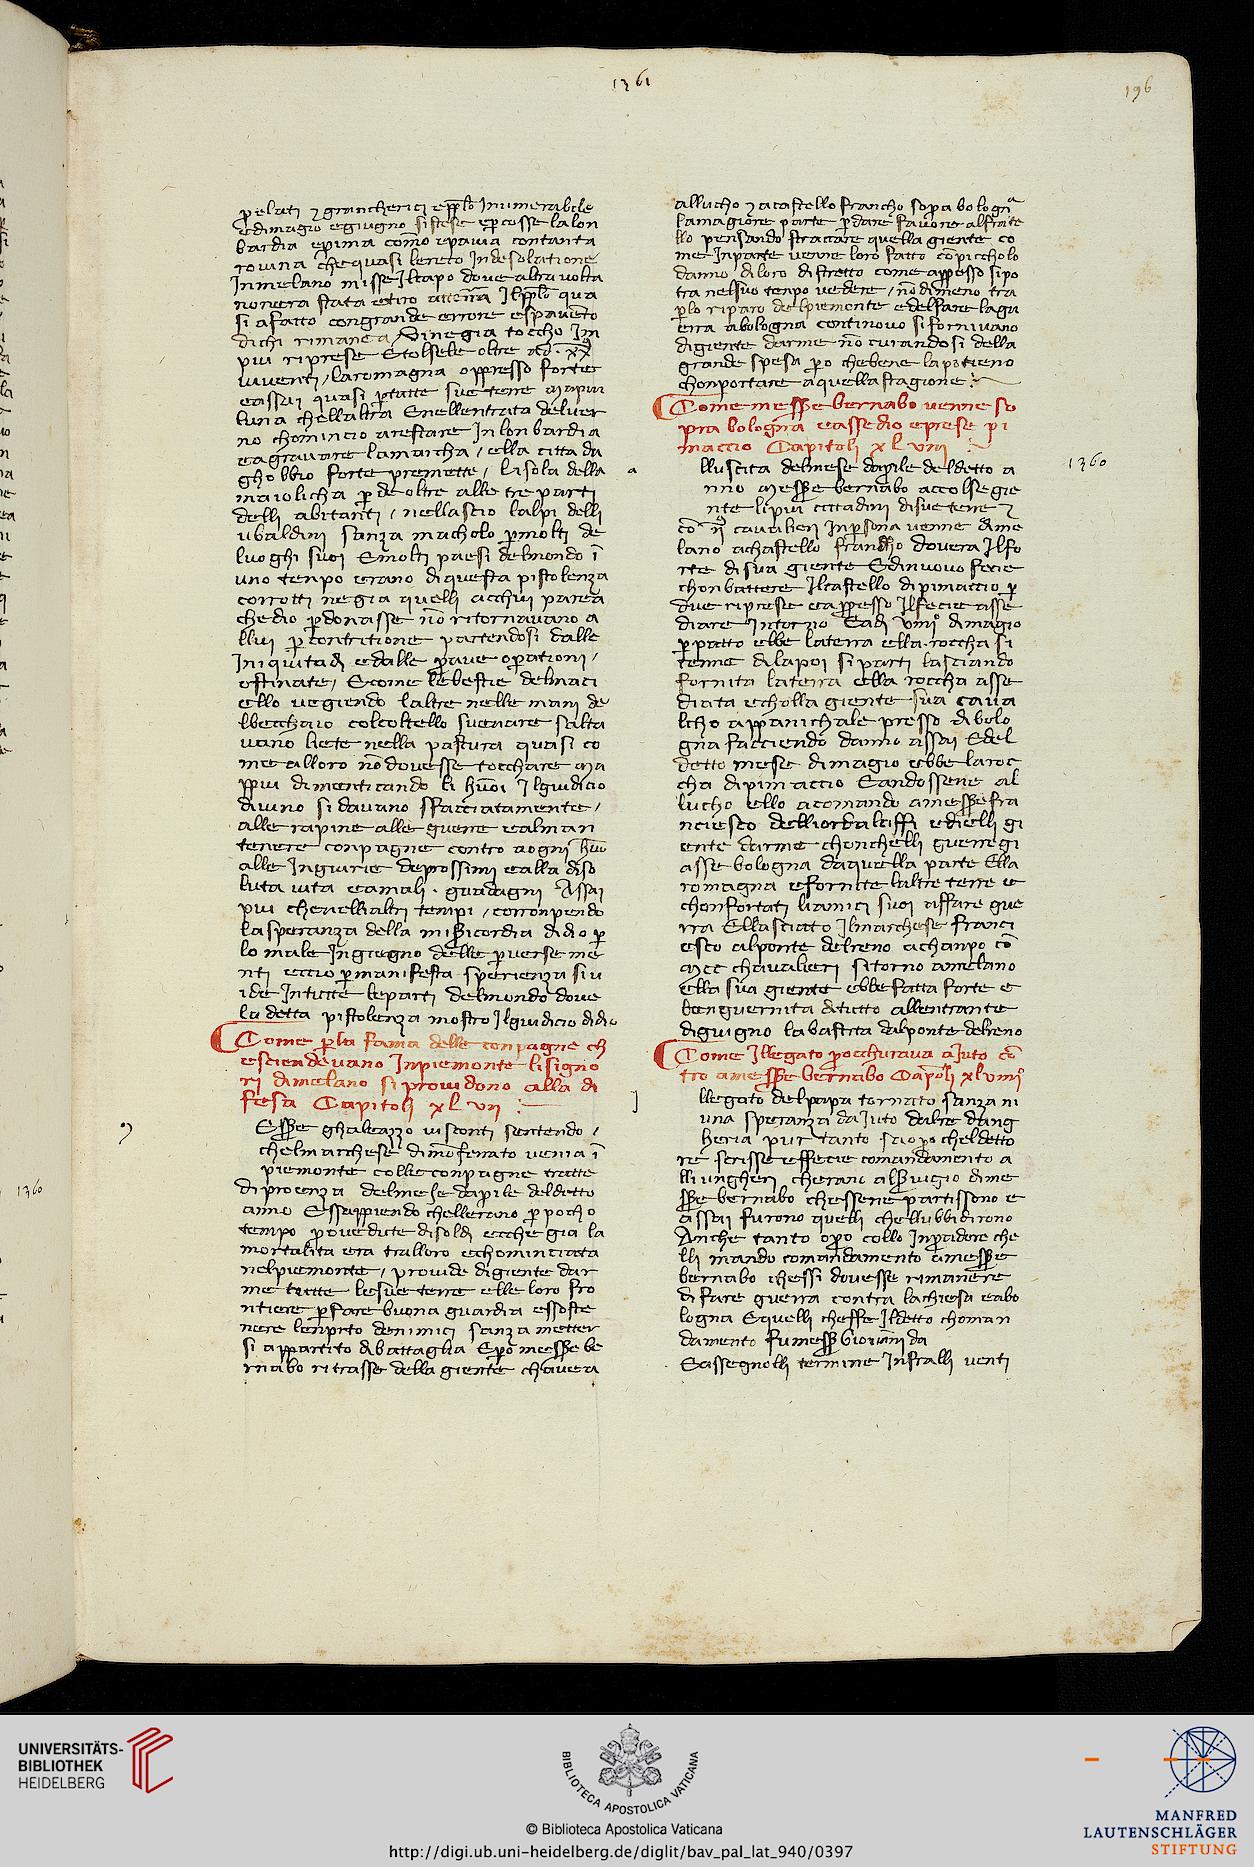 1361
196
prelati ⁊ gran cherici e pplō Inumerabile
e di magio e giugno si stese e percosse la lon
bardia e prima como e pavia con tanta
rovina che quasi le reto In desolatione
In melano misse Il capo dove altra volta
non era stata e tiro a terra Il pplō qua
si a fatto con grande errore e spavēto
di chi rimanea / Vinegia toccho In
piu riprese E tolsele oltre a xx
viventi / la romagna oppresso forte
e assai quasi per tutte sue terre Ma piu
luna chellaltra E nellentrata del ver
no chomincio a restare In lonbardia
e a gravare la marcha / ella citta da
ghobbio forte premette / lisola della
maiolicha perde oltre alle tre parti
delli abitanti / nellascio lalpi delli
ubaldini sanza macholo p molti de
luoghi suoi E molti paesi del mondo ī
uno tenpo erano di questa pistolenza
corrotti ne gia quelli a cchui parea
che dio perdonasse nō ritornavano a
llui p contritione partendosi dalle
Iniquitadi e dalle prave operationi /
ostinate / E come le bestie del maci
ello vegiendo laltre nelle mani de
lbecchaio col coltello svenare salta
vano liete nella pastura quasi co
me alloro nō dovesse tocchare Ma
ppiu dimenticando li huōi Il giudicio
divino si davano sfacciatamente /
alle rapine alle guerre e al man
tenere conpagne contro a ogni huō
alle Ingiurie de prossimi e alla diso
luta vita e a mali . guadagni Assai
piu che nelli altri tempi / corronpendo
la speranza della misericordia di dio p
lo male Ingiegno delle perverse me
nti e ccio p manifesta sperienza si v
ide In tutte le parti del mondo dove
la detta pistolenza mostro Il giudicio di dio
Come per la fama delle conpagne ch
e sciendevano In piemonte li signo
ri di melano si providono alla di
fesa Capitoli xl vii :
Esser ghaleazzo visconti sentendo /
chel marchese di mōferrato venia ī
piemonte colle conpagne tratte
di proenza del mese daprile del detto
anno E ssappiendo chellerano p pocho
tempo provedute di soldi e cche gia la
mortalita era tralloro e cchominciata
nel piemonte / provide di giente dar
me tutte le sue terre e lle loro fro
ntiere per fare buona guardia e ssoste
nere lenpito de nimici sanza metter
si a ppartito di battaglia E pero messer be
rnabo ritrasse della giente chavera
1360
a llucho ⁊ a castello francho sopra bologna
la magiore parte p dare favore al frate
llo pensando stracare quella giente co
me In parte venne loro fatto cō piccholo
danno di loro distretto come appresso si po
tra nel suo tenpo vedere / nō di meno tra
plo riparo del piemonte e del fare la gu
erra a bologna continovo si fornivano
di giente darme nō curandosi della
grande spesa p o che bene la potieno
chonportare a quella stagione :
Come messer bernabo venne so
pra bologna e assedio e prese pi
maccio Capitoli xl viii :
a
1360
lluscita del mese daprile del detto a
nno Messer bernabo accolse gie
nte li piu cittadini di sue terre ⁊
cō cavalieri In persona venne di me
lano a chastello francho dovera Il fo
rte di sua giente E di nuovo fecie
chonbattere Il castello di pimaccio p
due riprese e appresso Il fecie asse
diare Intorno E a di di magio
p patto ebbe la terra e lla roccha si
tenne dilapoi si parti lasciando
fornita la terra e lla roccha asse
diata e cholla giente sua cava
lcho a ppanichale presso di bolo
gna facciendo danno assai E del
detto mese di magio ebbe la roc
cha di pimaccio E andossene al
lucho e llo acomando a messer fra
nciesco delli ordalaffi e dielli gi
ente darme chonchelli guerregi
asse bologna da quella parte E lla
romagna e fornite laltre terre e
chonfortati li amici suoi a ffare gue
rra E llasciato Il marchese franci
esco al ponte del reno a chanpo cō
Mcc chavalieri si torno a melano
e lla sua giente ebbe fatta forte e
ben guernita di tutto allentrante
di giugno la bastita dal ponte del reno
Come Il legato procchurava aiuto cō
tro a messer bernabo Capitoli xlviiii
J
llegato del papa tornato sanza ni
una speranza daiuto dal re dung
heria pur tanto sadopero chel detto
re scrisse e ffecie comandamento a
lli ungheri cherano al servigio di me
sser bernabo che ssene partissono e
assai furono quelli che llubbidirono
Anche tanto opero collo Inperadore che
lli mando comandamento a messer
bernabo che ssi dovesse rimanere
di fare guerra contra la chiesa e a bo
logna E quelli che ffe Il detto choman
damento fu messer Giovanni da
E assegnolli termine In fralli venti
1360
UNIVERSITÄTS-
BIBLIOTHEK
HEIDELBERG
BIBLIOTECA APOSTOLICA VATICANA
© Biblioteca Apostolica Vaticana
http://digi.ub.uni-heidelberg.de/diglit/bav_pal_lat_940/0397
MANFRED
LAUTENSCHLÄGER
STIFTUNG